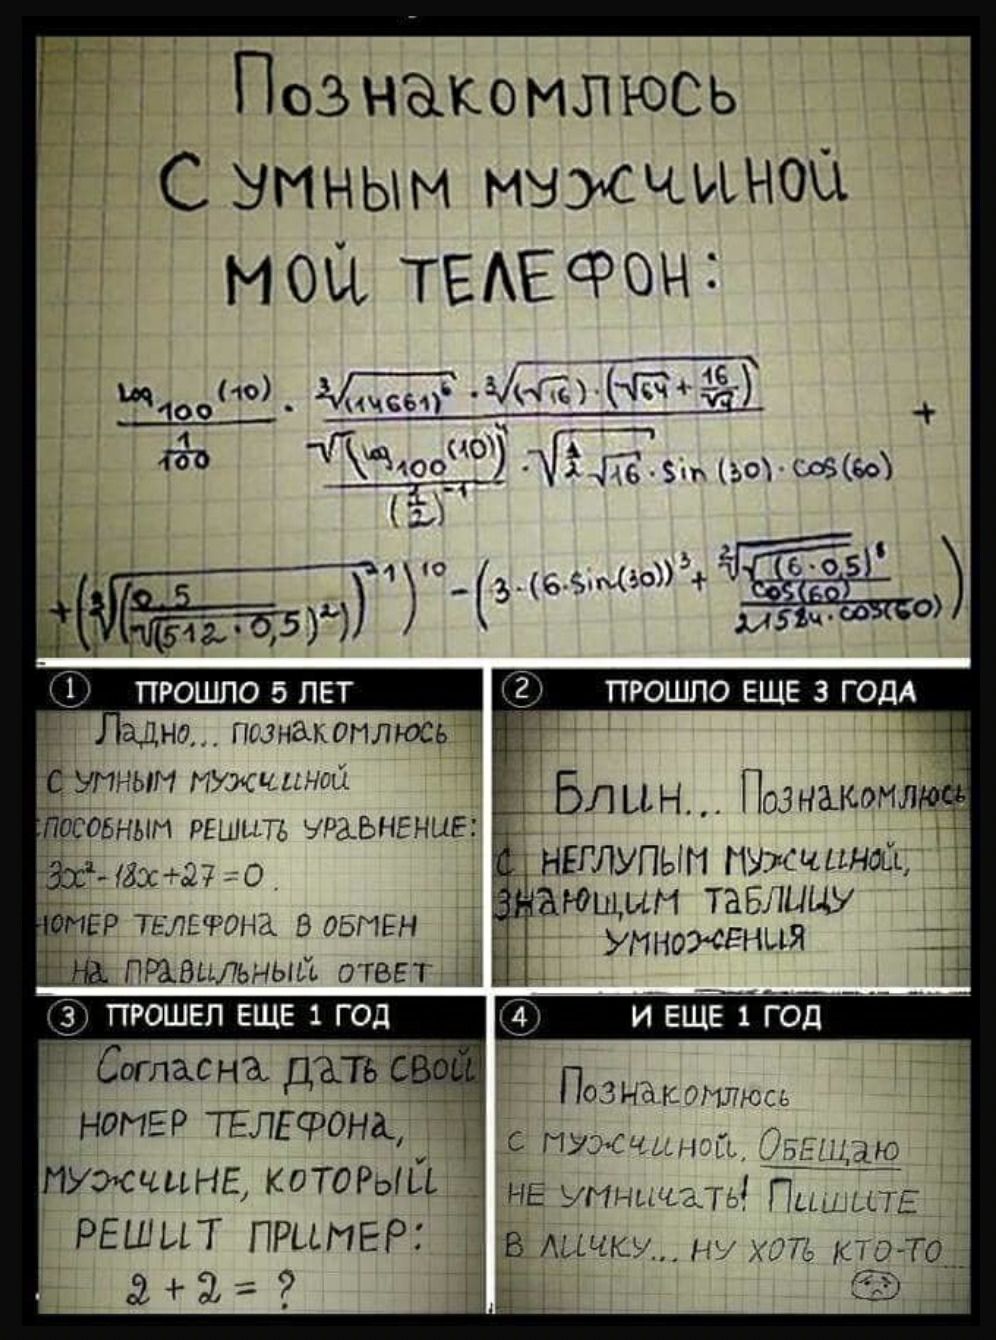 Познакомлюсь
С умным мужчиной
мой телефон:
log₁₀₀(10) / (1/100) · ∛(14661)⁶ · ∛((√16) · (√64 + 16/√4)) / (√(log₁₀₀(10))⁴ / (1/2)⁻¹ · √(1/2 √16 · sin(30) · cos(60))) +
+ (∛(0.5 / √(512 · 0,5)²))⁻¹)¹⁰ − (3·(6·sin(30))³ +
① ПРОШЛО 5 ЛЕТ
Ладно... познакомлюсь
с умным мужчиной
способным решить уравнение:
3x² - 18x + 27 = 0.
номер телефона в обмен
на правильный ответ
② ПРОШЛО ЕЩЕ 3 ГОДА
Блин... Познакомлюсь
с неглупым мужчиной,
знающим таблицу
умножения
③ ПРОШЕЛ ЕЩЕ 1 ГОД
Согласна дать свой
номер телефона,
мужчине, который
решит пример:
2 + 2 = ?
④ И ЕЩЕ 1 ГОД
Познакомлюсь
с мужчиной. Обещаю
не умничать! Пишите
в личку... ну хоть кто-то